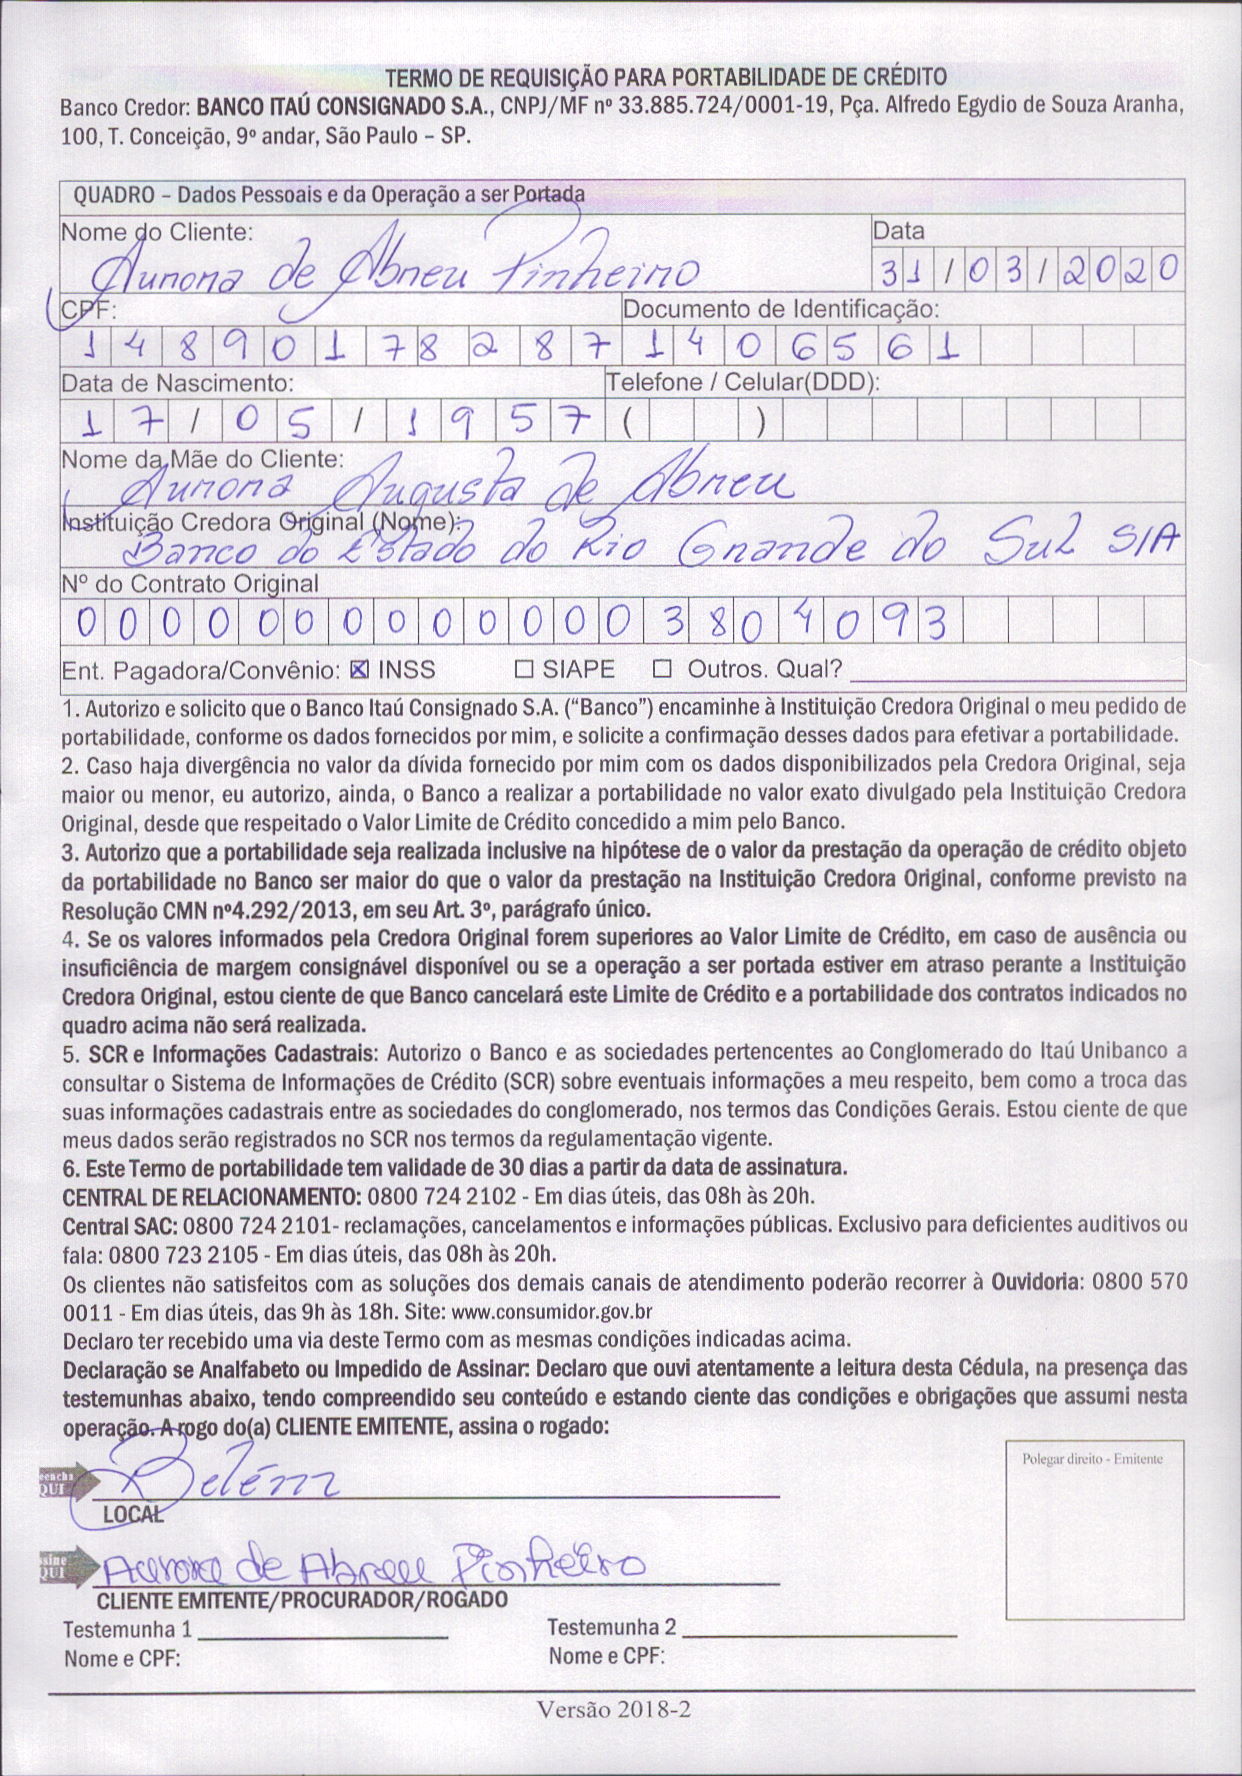 TERMO DE REQUISIÇÃO PARA PORTABILIDADE DE CRÉDITO
Banco Credor: BANCO ITAÚ CONSIGNADO S.A., CNPJ/MF nº 33.885.724/0001-19, Pça. Alfredo Egydio de Souza Aranha,
100, T. Conceição, 9º andar, São Paulo – SP.
QUADRO – Dados Pessoais e da Operação a ser Portada
Nome do Cliente: Data
Aurora de Abreu Pinheiro 31/03/2020
CPF: Documento de Identificação:
14890178287 1406561
Data de Nascimento: Telefone / Celular(DDD):
17/05/1957 ( )
Nome da Mãe do Cliente:
Aurora Augusta de Abreu
Instituição Credora Original (Nome):
Banco do Estado do Rio Grande do Sul S/A
Nº do Contrato Original
00000000000003804093
Ent. Pagadora/Convênio: ☒ INSS ☐ SIAPE ☐ Outros. Qual?
1. Autorizo e solicito que o Banco Itaú Consignado S.A. (“Banco”) encaminhe à Instituição Credora Original o meu pedido de
portabilidade, conforme os dados fornecidos por mim, e solicite a confirmação desses dados para efetivar a portabilidade.
2. Caso haja divergência no valor da dívida fornecido por mim com os dados disponibilizados pela Credora Original, seja
maior ou menor, eu autorizo, ainda, o Banco a realizar a portabilidade no valor exato divulgado pela Instituição Credora
Original, desde que respeitado o Valor Limite de Crédito concedido a mim pelo Banco.
3. Autorizo que a portabilidade seja realizada inclusive na hipótese de o valor da prestação da operação de crédito objeto
da portabilidade no Banco ser maior do que o valor da prestação na Instituição Credora Original, conforme previsto na
Resolução CMN nº4.292/2013, em seu Art. 3º, parágrafo único.
4. Se os valores informados pela Credora Original forem superiores ao Valor Limite de Crédito, em caso de ausência ou
insuficiência de margem consignável disponível ou se a operação a ser portada estiver em atraso perante a Instituição
Credora Original, estou ciente de que Banco cancelará este Limite de Crédito e a portabilidade dos contratos indicados no
quadro acima não será realizada.
5. SCR e Informações Cadastrais: Autorizo o Banco e as sociedades pertencentes ao Conglomerado do Itaú Unibanco a
consultar o Sistema de Informações de Crédito (SCR) sobre eventuais informações a meu respeito, bem como a troca das
suas informações cadastrais entre as sociedades do conglomerado, nos termos das Condições Gerais. Estou ciente de que
meus dados serão registrados no SCR nos termos da regulamentação vigente.
6. Este Termo de portabilidade tem validade de 30 dias a partir da data de assinatura.
CENTRAL DE RELACIONAMENTO: 0800 724 2102 - Em dias úteis, das 08h às 20h.
Central SAC: 0800 724 2101- reclamações, cancelamentos e informações públicas. Exclusivo para deficientes auditivos ou
fala: 0800 723 2105 - Em dias úteis, das 08h às 20h.
Os clientes não satisfeitos com as soluções dos demais canais de atendimento poderão recorrer à Ouvidoria: 0800 570
0011 - Em dias úteis, das 9h às 18h. Site: www.consumidor.gov.br
Declaro ter recebido uma via deste Termo com as mesmas condições indicadas acima.
Declaração se Analfabeto ou Impedido de Assinar: Declaro que ouvi atentamente a leitura desta Cédula, na presença das
testemunhas abaixo, tendo compreendido seu conteúdo e estando ciente das condições e obrigações que assumi nesta
operação. A rogo do(a) CLIENTE EMITENTE, assina o rogado:
Polegar direito - Emitente
Belém
LOCAL
Aurora de Abreu Pinheiro
CLIENTE EMITENTE/PROCURADOR/ROGADO
Testemunha 1 Testemunha 2
Nome e CPF: Nome e CPF:
Versão 2018-2